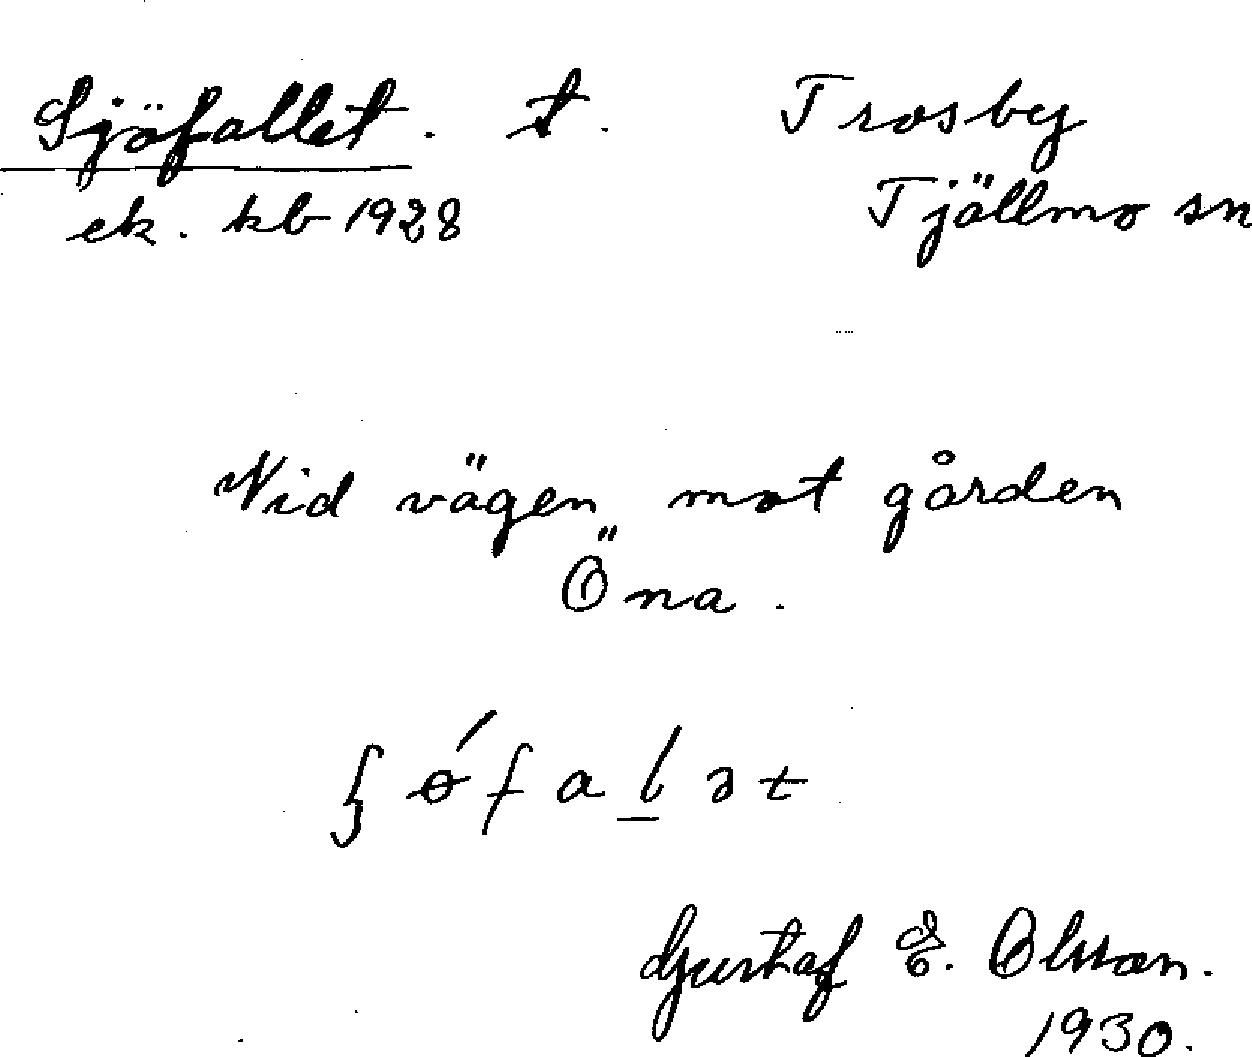 Sjöfallet. t. Trosby
ek. kb 1928 Tjällmo sn
Vid vägen mot gården
Öna.
ʃ ǿ f a l̲ ə t
Gustaf E. Olsson.
1930.